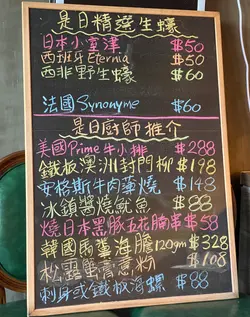 是日精選生蠔
日本小室津 $50
西班牙Eternia $50
西非野生蠔 $60
法國Synonyme $60
是日廚師推介
美國Prime牛小排 $288
鐵板澳洲封門柳 $198
安格斯牛肉薄燒 $148
冰鎮醬燒魷魚 $88
燒日本黑豚五花腩串 $58
韓國馬糞海膽120gm $328
松露蟹膏意粉 $108
刺身或鐵板海螺 $88